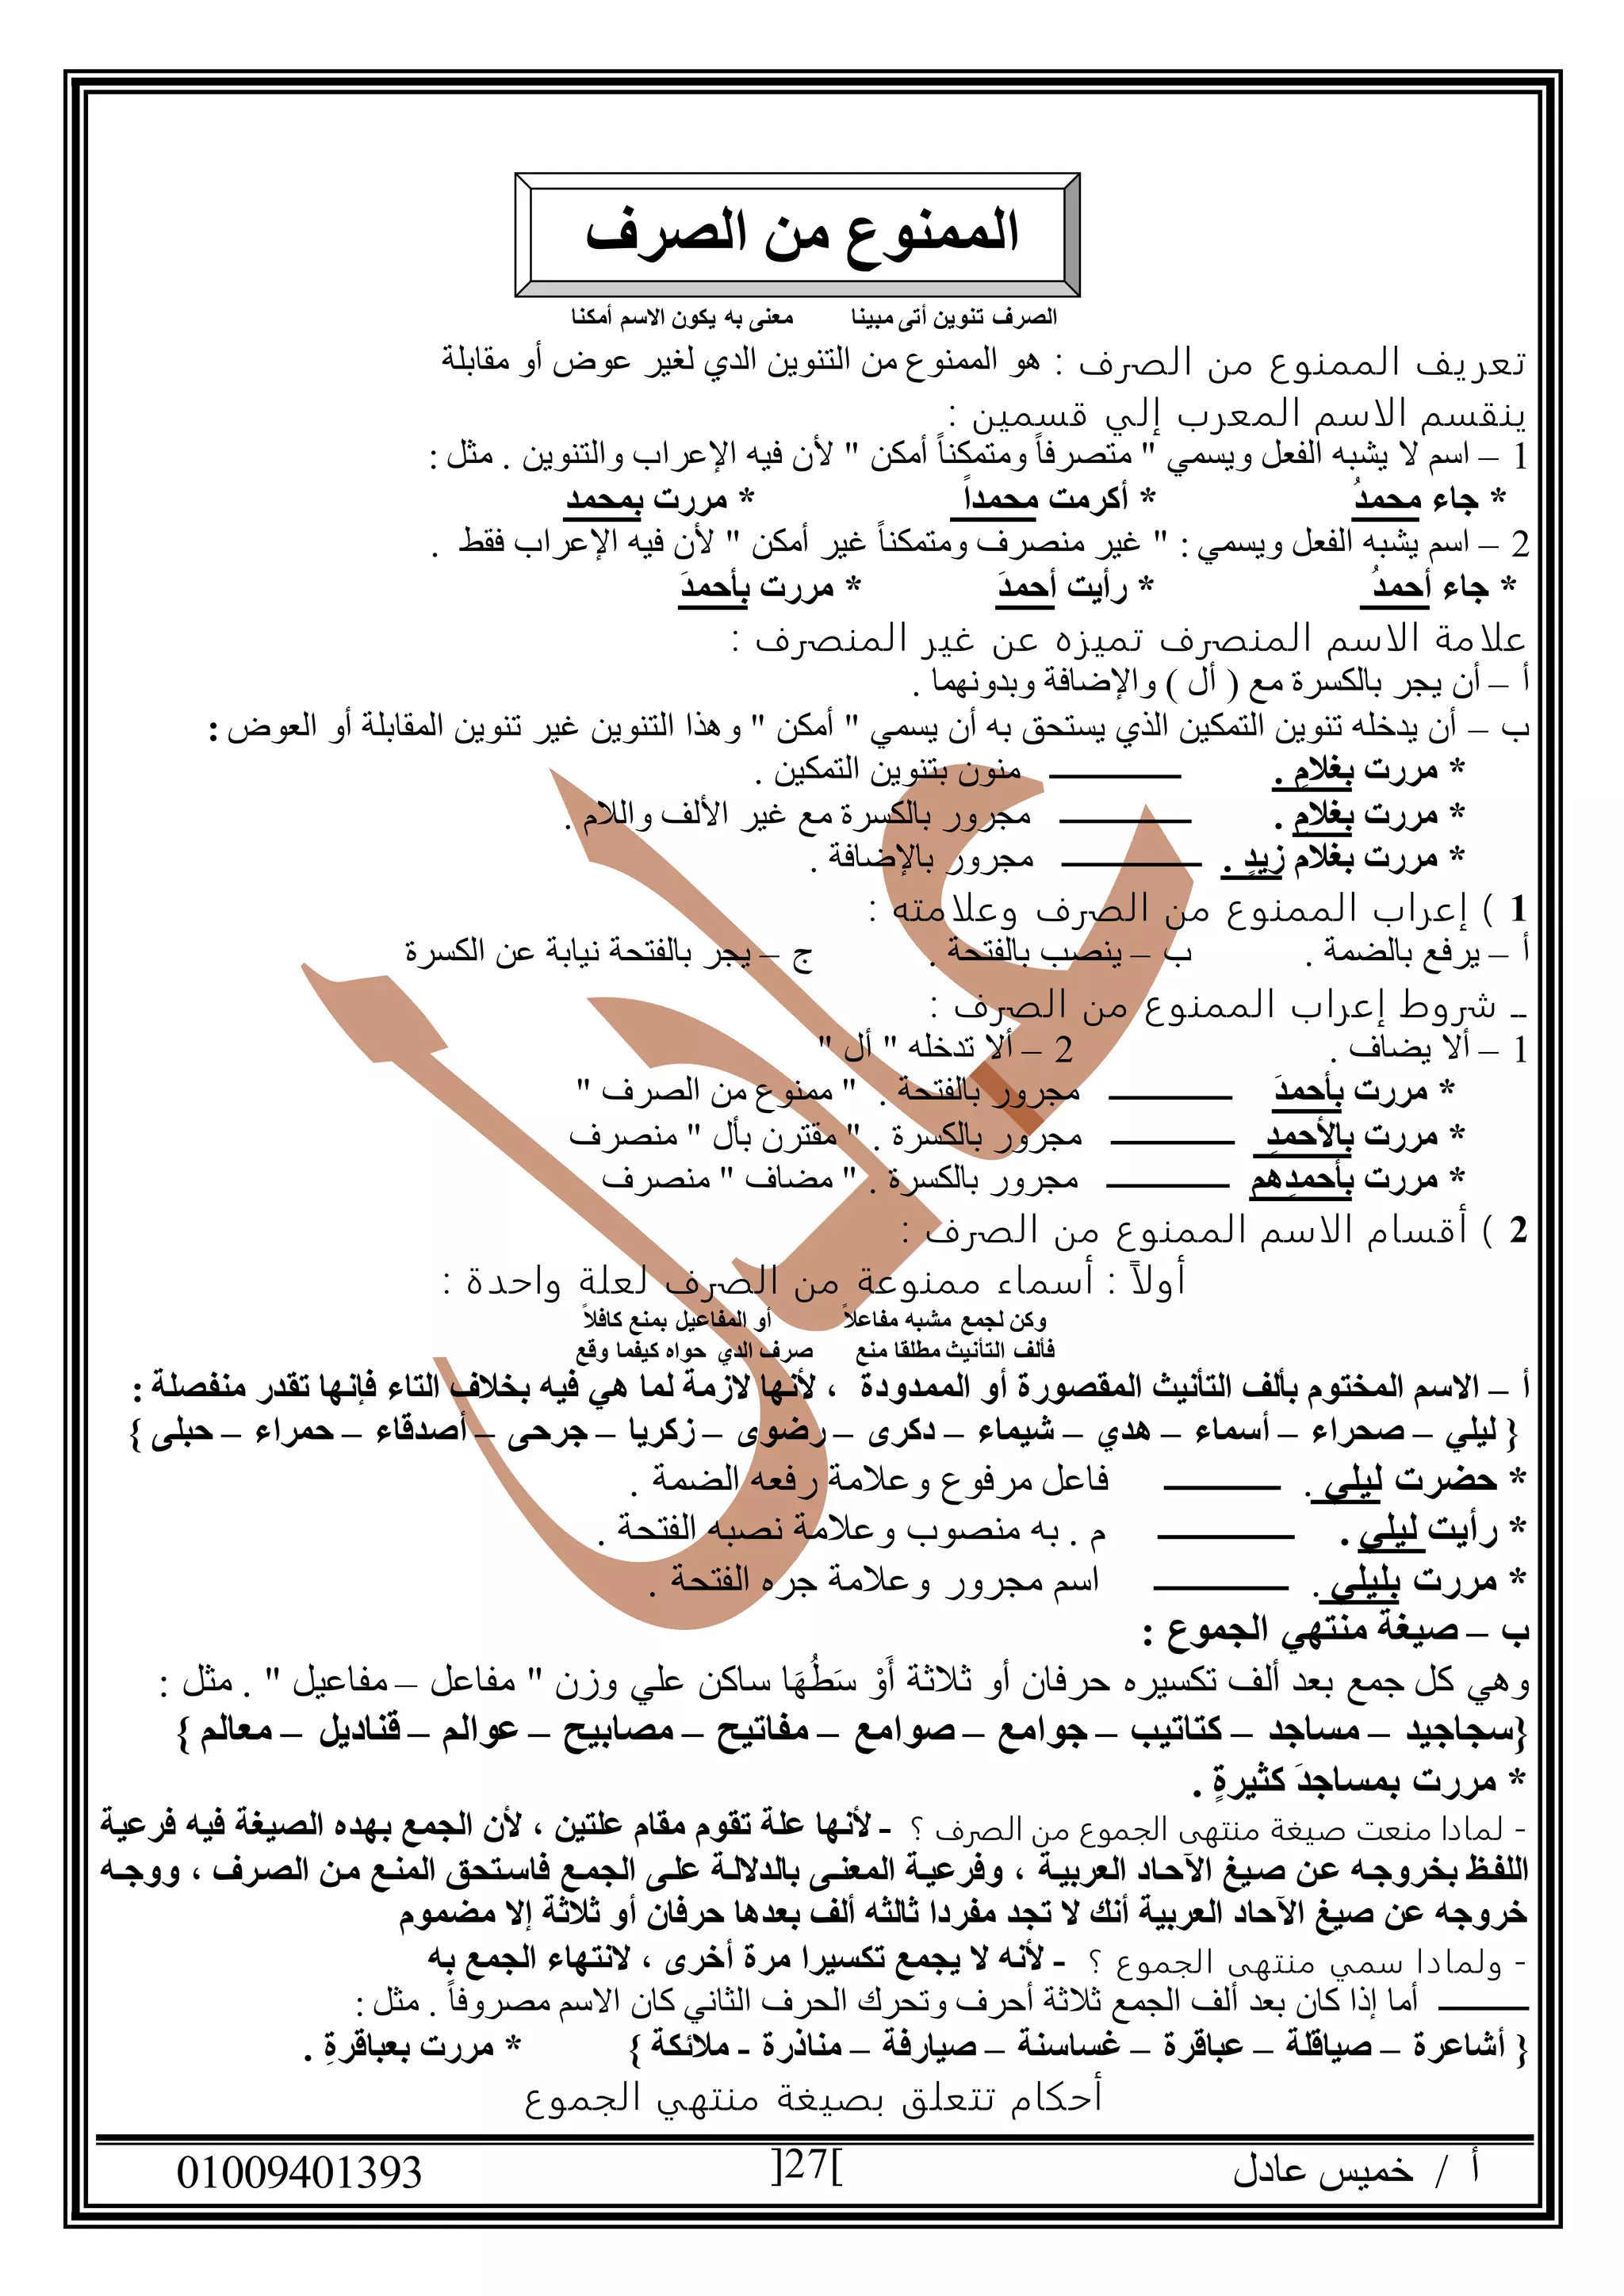 الممنوع من الصرف
الصرف تنوين أتى مبينا معنى به يكون الاسم أمكنا
تعريف الممنوع من الصرف : هو الممنوع من التنوين الدي لغير عوض أو مقابلة
ينقسم الاسم المعرب إلي قسمين :
1 – اسم لا يشبه الفعل ويسمي " متصرفاً ومتمكناً أمكن " لأن فيه الإعراب والتنوين . مثل :
* جاء محمدُ * أكرمت محمداً * مررت بمحمد
2 – اسم يشبه الفعل ويسمي : " غير منصرف ومتمكناً غير أمكن " لأن فيه الإعراب فقط .
* جاء أحمدُ * رأيت أحمدَ * مررت بأحمدَ
علامة الاسم المنصرف تميزه عن غير المنصرف :
أ – أن يجر بالكسرة مع ( أل ) والإضافة وبدونهما .
ب – أن يدخله تنوين التمكين الذي يستحق به أن يسمي " أمكن " وهذا التنوين غير تنوين المقابلة أو العوض :
* مررت بغلامِ . ــــــــــ منون بتنوين التمكين .
* مررت بغلامِ . ــــــــــ مجرور بالكسرة مع غير الألف واللام .
* مررت بغلام زيدٍ . ــــــــــ مجرور بالإضافة .
1 ) إعراب الممنوع من الصرف وعلامته :
أ – يرفع بالضمة . ب – ينصب بالفتحة . ج – يجر بالفتحة نيابة عن الكسرة
ـ شروط إعراب الممنوع من الصرف :
1 – ألا يضاف . 2 – ألا تدخله " أل "
* مررت بأحمدَ ــــــــــ مجرور بالفتحة . " ممنوع من الصرف "
* مررت بالأحمدِ ــــــــــ مجرور بالكسرة . " مقترن بأل " منصرف
* مررت بأحمدِهم ــــــــــ مجرور بالكسرة . " مضاف " منصرف
2 ) أقسام الاسم الممنوع من الصرف :
أولاً : أسماء ممنوعة من الصرف لعلة واحدة :
وكن لجمع مشبه مفاعلاً أو المفاعيل بمنع كافلاً
فألف التأنيث مطلقا منع صرف الدي حواه كيفما وقع
أ – الاسم المختوم بألف التأنيث المقصورة أو الممدودة ، لأنها لازمة لما هي فيه بخلاف التاء فإنها تقدر منفصلة :
{ ليلي – صحراء – أسماء – هدي – شيماء – دكرى – رضوى – زكريا – جرحى – أصدقاء – حمراء – حبلى }
* حضرت ليلي . ــــــــــ فاعل مرفوع وعلامة رفعه الضمة .
* رأيت ليلي . ــــــــــ م . به منصوب وعلامة نصبه الفتحة .
* مررت بليلي . ــــــــــ اسم مجرور وعلامة جره الفتحة .
ب – صيغة منتهي الجموع :
وهي كل جمع بعد ألف تكسيره حرفان أو ثلاثة أَوْ سَطُهَا ساكن علي وزن " مفاعل – مفاعيل " . مثل :
{سجاجيد – مساجد – كتاتيب – جوامع – صوامع – مفاتيح – مصابيح – عوالم – قناديل – معالم }
* مررت بمساجدَ كثيرةٍ .
- لمادا منعت صيغة منتهى الجموع من الصرف ؟ - لأنها علة تقوم مقام علتين ، لأن الجمع بهده الصيغة فيه فرعية
اللفظ بخروجه عن صيغ الآحاد العربية ، وفرعية المعنى بالدلالة على الجمع فاستحق المنع من الصرف ، ووجه
خروجه عن صيغ الآحاد العربية أنك لا تجد مفردا ثالثه ألف بعدها حرفان أو ثلاثة إلا مضموم
- ولمادا سمي منتهى الجموع ؟ - لأنه لا يجمع تكسيرا مرة أخرى ، لانتهاء الجمع به
ــــــــ أما إذا كان بعد ألف الجمع ثلاثة أحرف وتحرك الحرف الثاني كان الاسم مصروفاً . مثل :
{ أشاعرة – صياقلة – عباقرة – غساسنة – صيارفة – مناذرة - ملائكة } * مررت بعباقرةِ .
أحكام تتعلق بصيغة منتهي الجموع
أ / خميس عادل ]27[ 01009401393
عادل